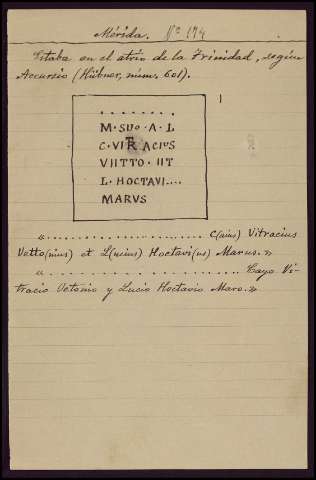 Mérida. Nº 174
Estaba en el atrio de la Trinidad, según
Accursio (Hübner, núm. 601).
. . . . . . . .
M · SUO · A · L
C · VITRACIUS
VIITTO · IIT
L · HOCTAVI....
MARVS
«........................ C(aius) Vitracius
Vetto(nius) et L(ucius) Hoctavi(us) Marus.»
«........................ Cayo Vi-
tracio Vetonio y Lucio Hoctavio Maro.»